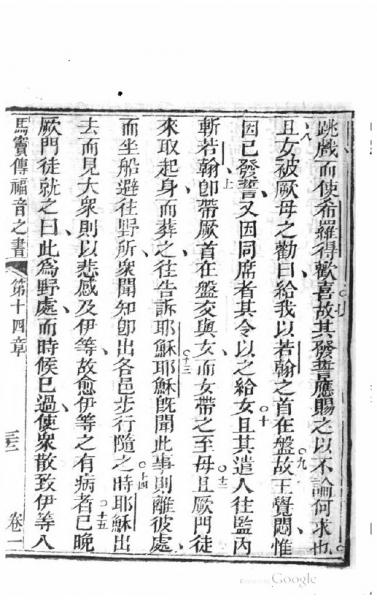 跳戲而使希羅得歡喜故其發誓應賜之以不論何求也
且女被厥母之勸曰給我以若翰之首在盤故王覺悶惟
因已發誓又因同席者其令以之給女且其遣人往監內
斬若翰卽帶厥首在盤交與女而女帶之至母且厥門徒
來取起身而葬之往告訴耶穌耶穌旣聞此事則離彼處
而坐船避往野所衆聞知卽出各邑步行隨之時耶穌出
去而見大衆則以悲感及伊等故愈伊等之有病者已晚
厥門徒就之曰此爲野處而時候已過使衆散致伊等入
馬竇傳福音之書 第十四章 卷一
Google